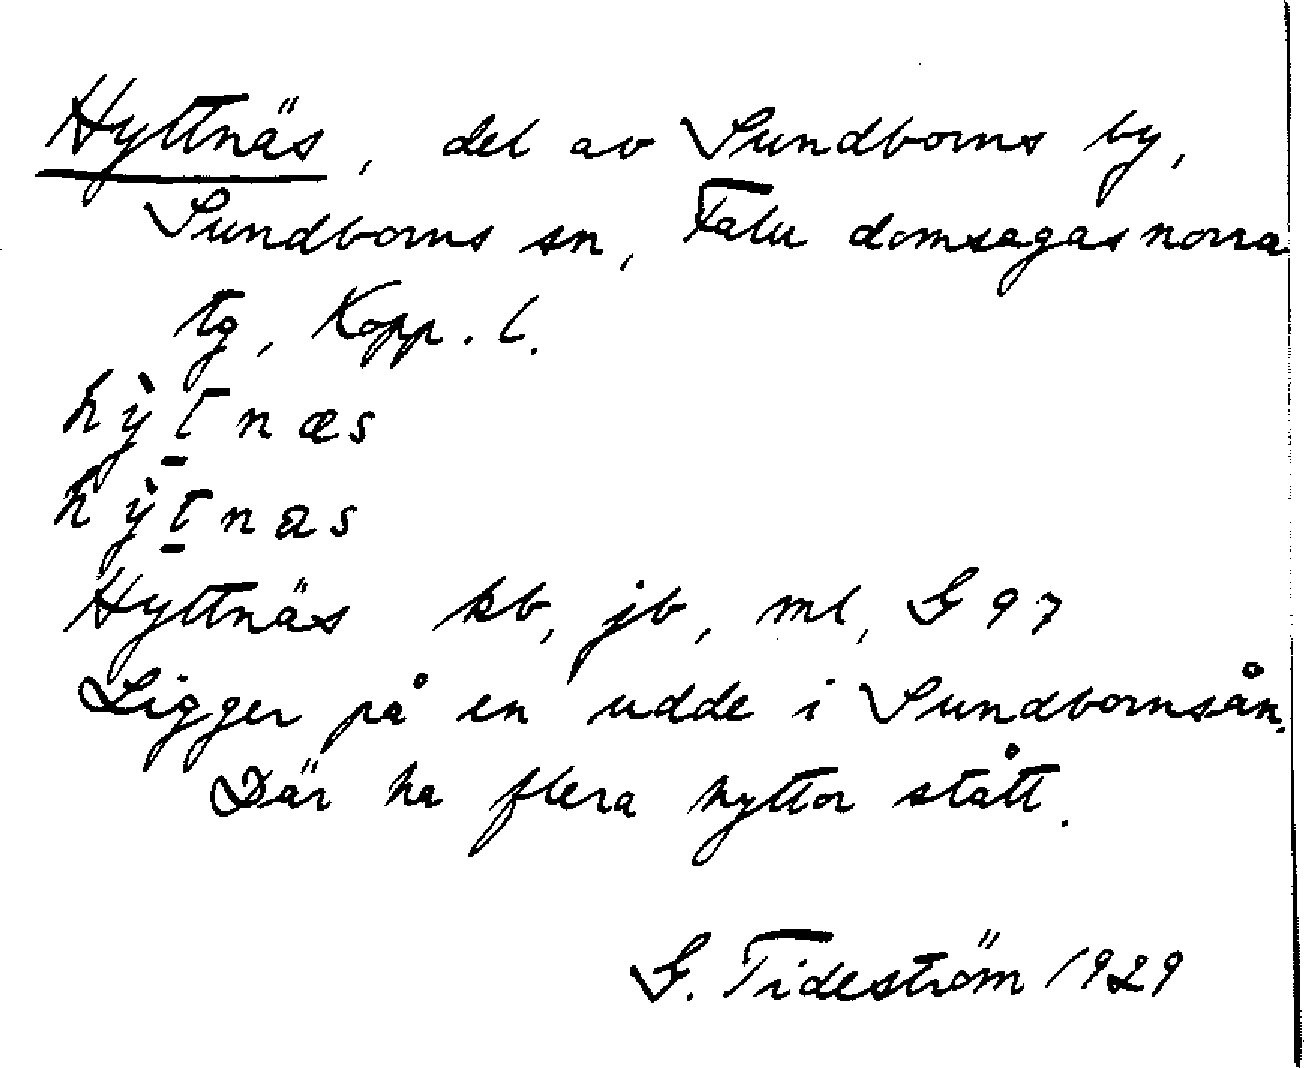 Hyttnäs, del av Sundborns by,
Sundborns sn, Falu domsagas norra
tg, Kopp. l.
hỳt̠næs
hỳt̠nas
Hyttnäs kb, jb, ml, G 97
Ligger på en udde i Sundbornsån.
Där ha flera hyttor stått.
G. Tideström 1929